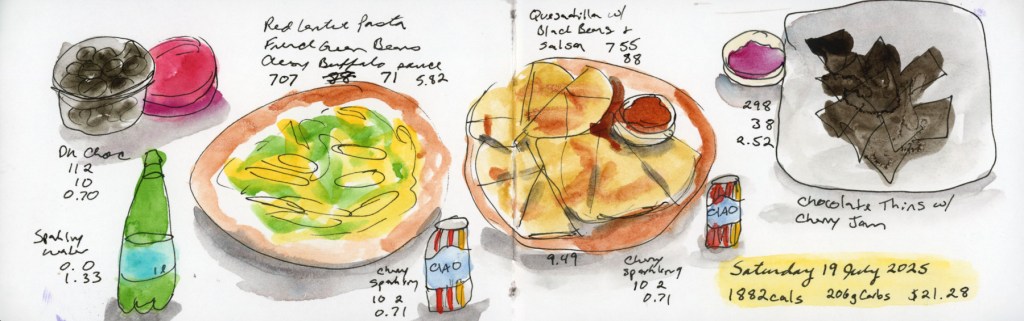 Red Lentil Pasta
French Green Beans
Creamy Buffalo sauce
707 88 71 5.82
Quesadilla w/
Black Beans &
Salsa 755
88
9.49
298
38
2.52
Chocolate Thins w/
Cherry Jam
Dk Choc
112
10
0.70
Sparkling
water
0.0
1.33
CIAO
Cherry
Sparkling
10 2
0.71
CIAO
Cherry
Sparkling
10 2
0.71
Saturday 19 July 2025
1882cals 206g Carbs $21.28